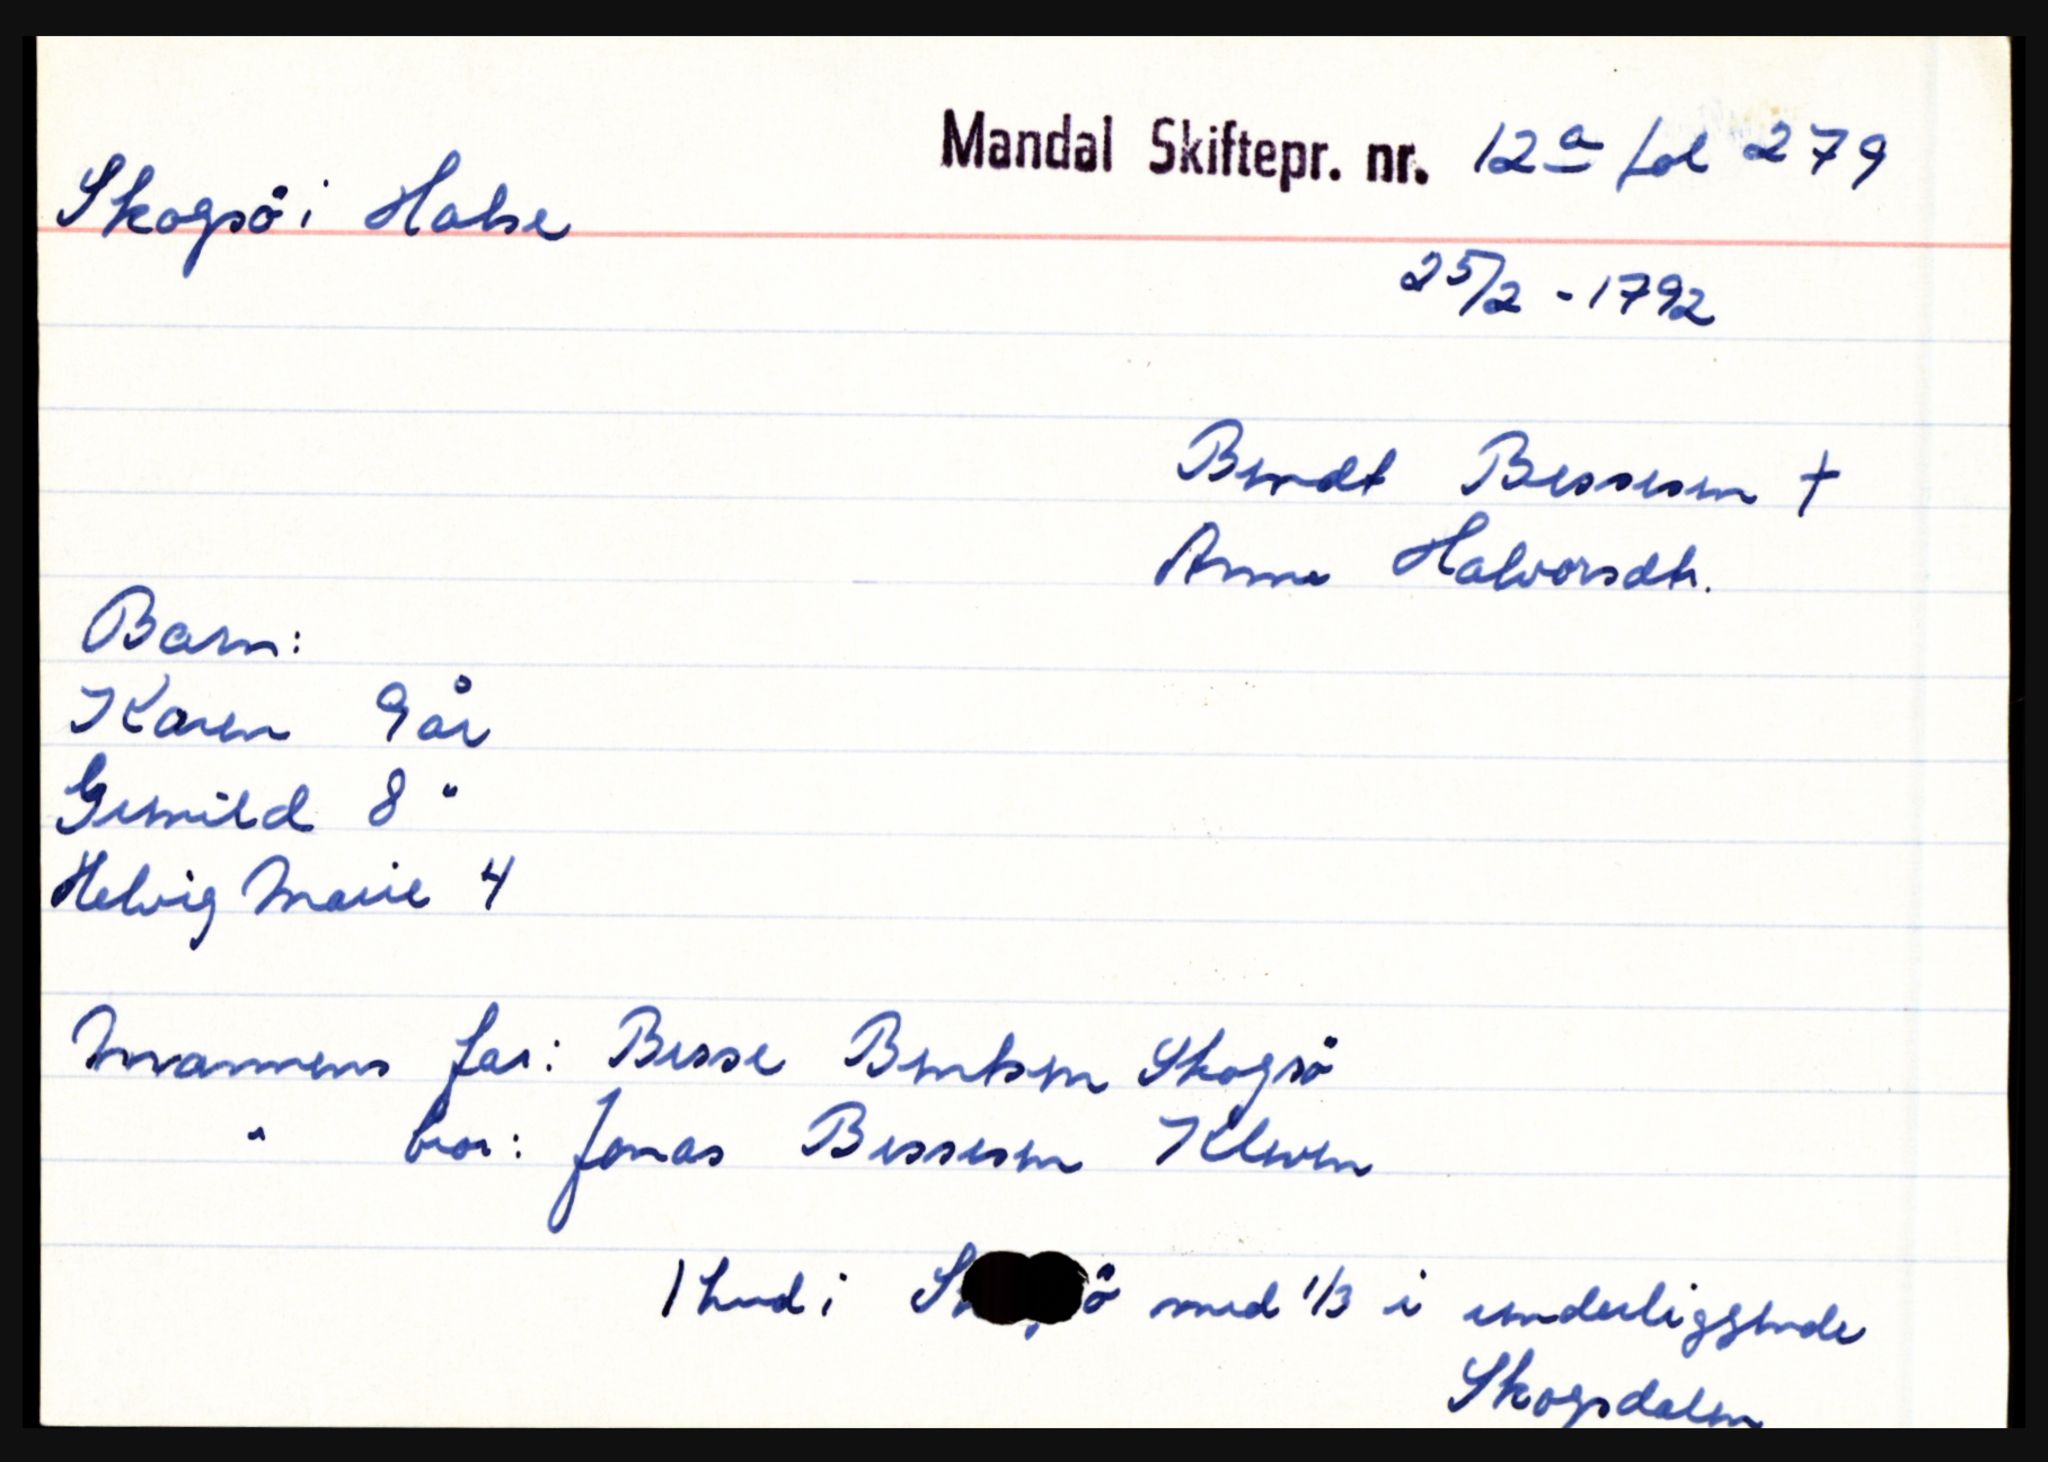 Mandal Skiftepr. nr. 12a fol 279
Skogsö i Halse
25/2 - 1792
Berndt Bessesen †
Anne Halvorsdtr.
Barn:
Karen 9 år
Gunild 8 "
Helvig Marie 4
Mannens far: Besse Berntsen Skogsö
" bror: Jonas Bessesen Kleven
1 hud i ö med 1/3 i underliggende
Skogsdalen